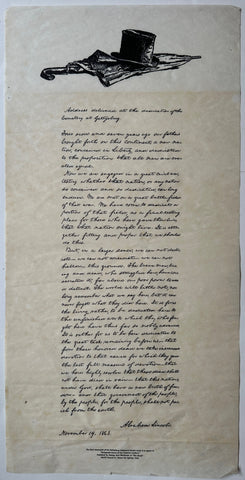 Address delivered at the dedication of the
Cemetery at Gettysburg.
Four score and seven years ago our fathers
brought forth on this continent, a new na-
tion, conceived in Liberty, and dedicated
to the proposition that all men are cre-
ated equal.
Now we are engaged in a great civil war,
testing whether that nation, or any nation
so conceived and so dedicated, can long
endure. We are met on a great battle-field
of that war. We have come to dedicate a
portion of that field, as a final resting
place for those who here gave their lives
that that nation might live. It is alto-
gether fitting and proper that we should
do this.
But, in a larger sense, we can not dedi-
cate— we can not consecrate— we can not
hallow— this ground. The brave men, liv-
ing and dead, who struggled here, have con-
secrated it, far above our poor power to add
or detract. The world will little note, nor
long remember what we say here, but it can
never forget what they did here. It is for us
the living, rather, to be dedicated here to
the unfinished work which they who fou-
ght here have thus far so nobly advanced.
It is rather for us to be here dedicated to
the great task remaining before us— that
from these honored dead we take increased
devotion to that cause for which they gave
the last full measure of devotion— that
we here highly resolve that these dead shall
not have died in vain— that this nation,
under God, shall have a new birth of free-
dom— and that government of the people,
by the people, for the people, shall not per-
ish from the earth.
Abraham Lincoln.
November 19, 1863.